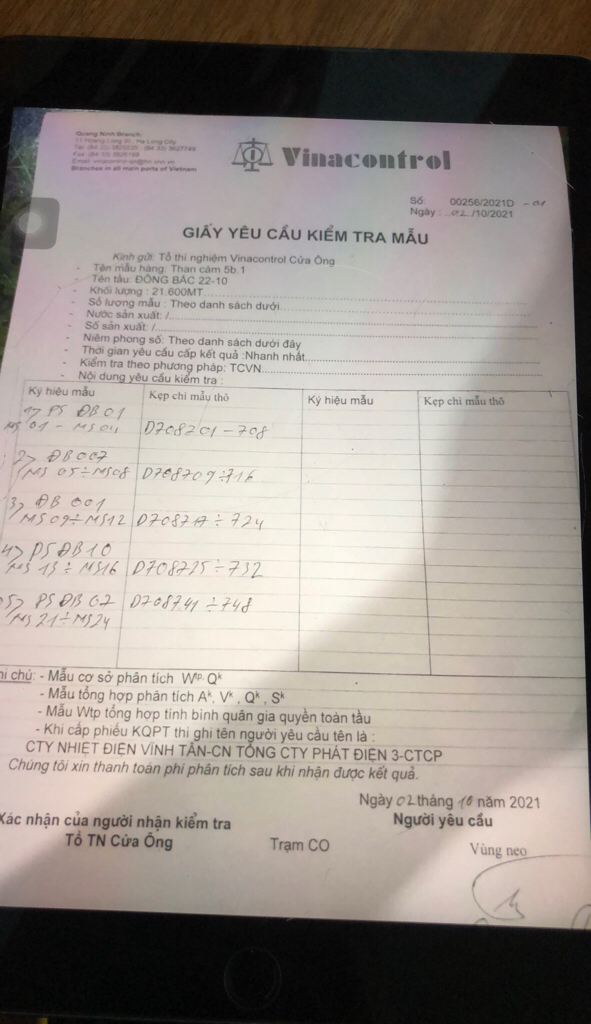 Quang Ninh Branch:
11 Hoang Long St., Ha Long City
Branches in all main parts of Vietnam
Vinacontrol
Số: 00256/2021D - 01
Ngày : 02 /10/2021
GIẤY YÊU CẦU KIỂM TRA MẪU
Kính gửi: Tổ thí nghiệm Vinacontrol Cửa Ông
- Tên mẫu hàng: Than cám 5b.1
- Tên tàu: ĐÔNG BẮC 22-10
- Khối lượng : 21.600MT
- Số lượng mẫu : Theo danh sách dưới
- Nước sản xuất: /
- Số sản xuất: /
- Niêm phong số: Theo danh sách dưới đây
- Thời gian yêu cầu cấp kết quả :Nhanh nhất
- Kiểm tra theo phương pháp: TCVN
- Nội dung yêu cầu kiểm tra :
Ký hiệu mẫu Kẹp chì mẫu thô Ký hiệu mẫu Kẹp chì mẫu thô
1> PS ĐB 01
MS 01 - MS 04 D708701 - 708
2> ĐB 007
MS 05 ÷ MS08 D708709 ÷ 716
3> ĐB 001
MS 09 ÷ MS12 D708717 ÷ 724
4> PS ĐB 10
MS 13 ÷ MS16 D708725 ÷ 732
05> PS ĐB 02 D708741 ÷ 748
MS 21 ÷ MS24
hi chú: - Mẫu cơ sở phân tích Wtp, Qk
- Mẫu tổng hợp phân tích Ak, Vk , Qk , Sk
- Mẫu Wtp tổng hợp tính bình quân gia quyền toàn tàu
- Khi cấp phiếu KQPT thì ghi tên người yêu cầu tên là :
CTY NHIỆT ĐIỆN VĨNH TÂN-CN TỔNG CTY PHÁT ĐIỆN 3-CTCP
Chúng tôi xin thanh toán phí phân tích sau khi nhận được kết quả.
Ngày 02 tháng 10 năm 2021
Xác nhận của người nhận kiểm tra Người yêu cầu
Tổ TN Cửa Ông Trạm CO Vùng neo